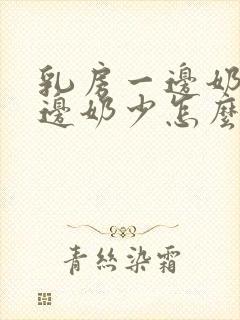 乳房一邊奶
邊奶少怎麼
青絲染霜